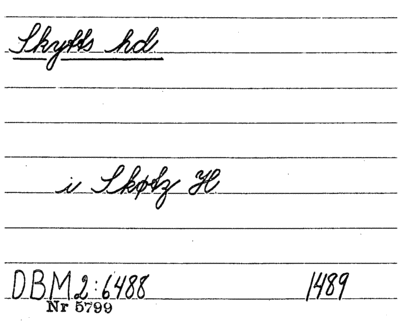 Skytts hd
i Skøtz H
DBM 2:6488 1489
Nr 5799